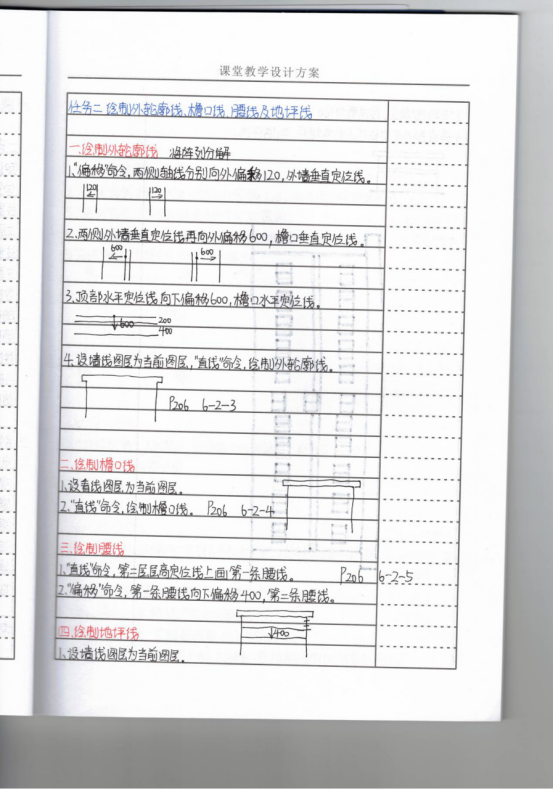 课堂教学设计方案
任务二 绘制外轮廓线、檐口线、腰线及地坪线
一、绘制外轮廓线 将阵列分解
1、"偏移"命令,两侧轴线分别向外偏移120,外墙垂直定位线。
120 120
2、两侧外墙垂直定位线再向外偏移600,檐口垂直定位线。
600 600
3、顶部水平定位线向下偏移600,檐口水平定位线。
600 200
400
4、设墙线图层为当前图层,"直线"命令,绘制外轮廓线。
P206 6-2-3
二、绘制檐口线
1、设墙线图层为当前图层。
2、"直线"命令,绘制檐口线。 P206 6-2-4
三、绘制腰线
1、"直线"命令,第二层层高定位线上画第一条腰线。 P206 6-2-5
2、"偏移"命令,第一条腰线向下偏移400,第二条腰线。
四、绘制地坪线 400
1、设墙线图层为当前图层。